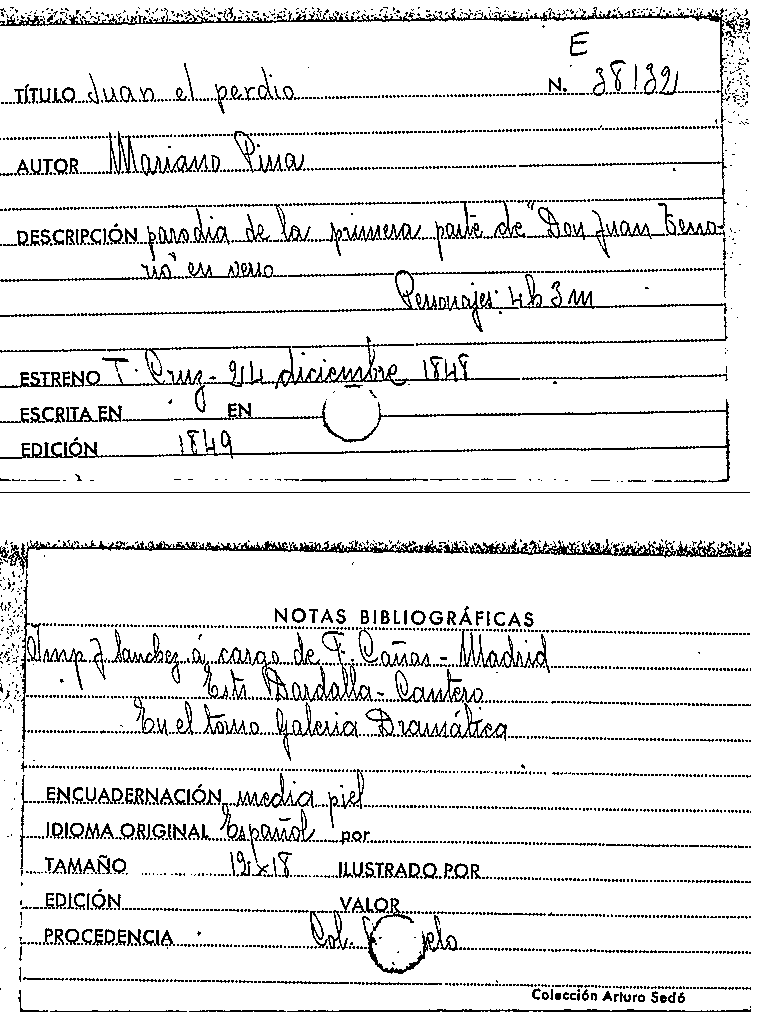 E
TÍTULO Juan el perdio N. 38132
AUTOR Mariano Pina
DESCRIPCIÓN parodia de la primera parte de "Don Juan Teno-
rio" en verso
Personajes: 4h 3m
ESTRENO T. Cruz - 24 diciembre 1848
ESCRITA EN EN
EDICIÓN 1849
NOTAS BIBLIOGRÁFICAS
Imp J. Sanchez á cargo de F. Cañas - Madrid
Estr Bardalla - Cantero
En el tomo Galeria Dramática
ENCUADERNACIÓN media piel
IDIOMA ORIGINAL Español por
TAMAÑO 12x18 ILUSTRADO POR
EDICIÓN VALOR
PROCEDENCIA Col.
Colección Arturo Sedó